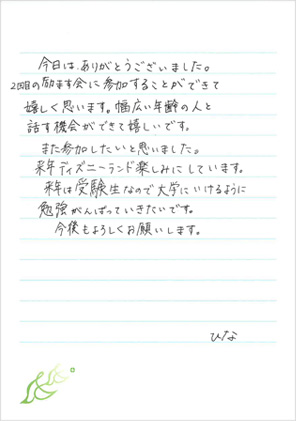 今日は、ありがとうございました。
2回目の励ます会に参加することができて
嬉しく思います。幅広い年齢の人と
話す機会ができて嬉しいです。
また参加したいと思いました。
来年ディズニーランド楽しみにしています。
来年は受験生なので大学にいけるように
勉強がんばっていきたいです。
今後もよろしくお願いします。
ひな